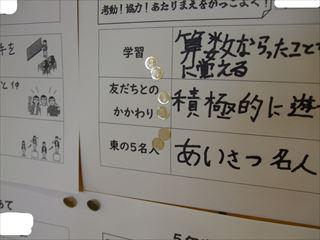 考動！協力！あたりまえをかっこよく！
学習
算数ならったことを
に覚える
友だちとの
かかわり
積極的に遊
東の5名人
あいさつ名人
手を